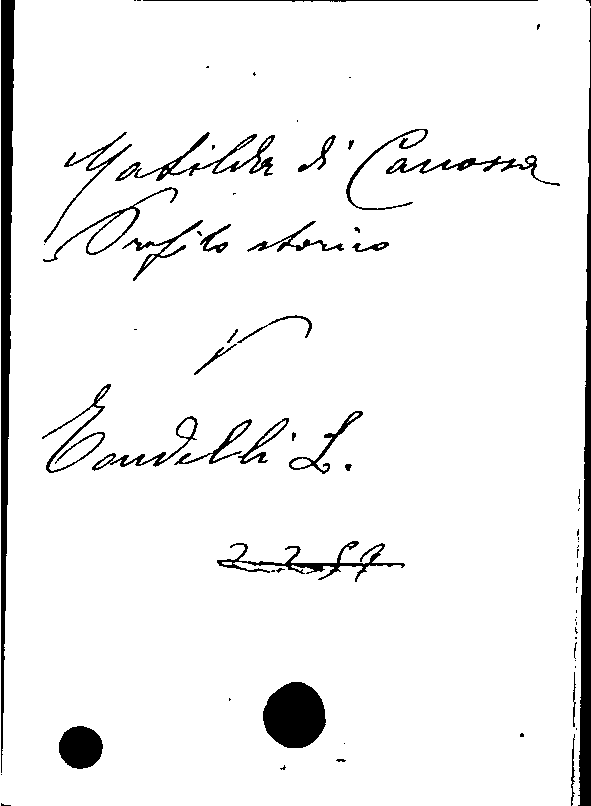 Matilda di Canossa
Profilo storico
V
Tondelli L.